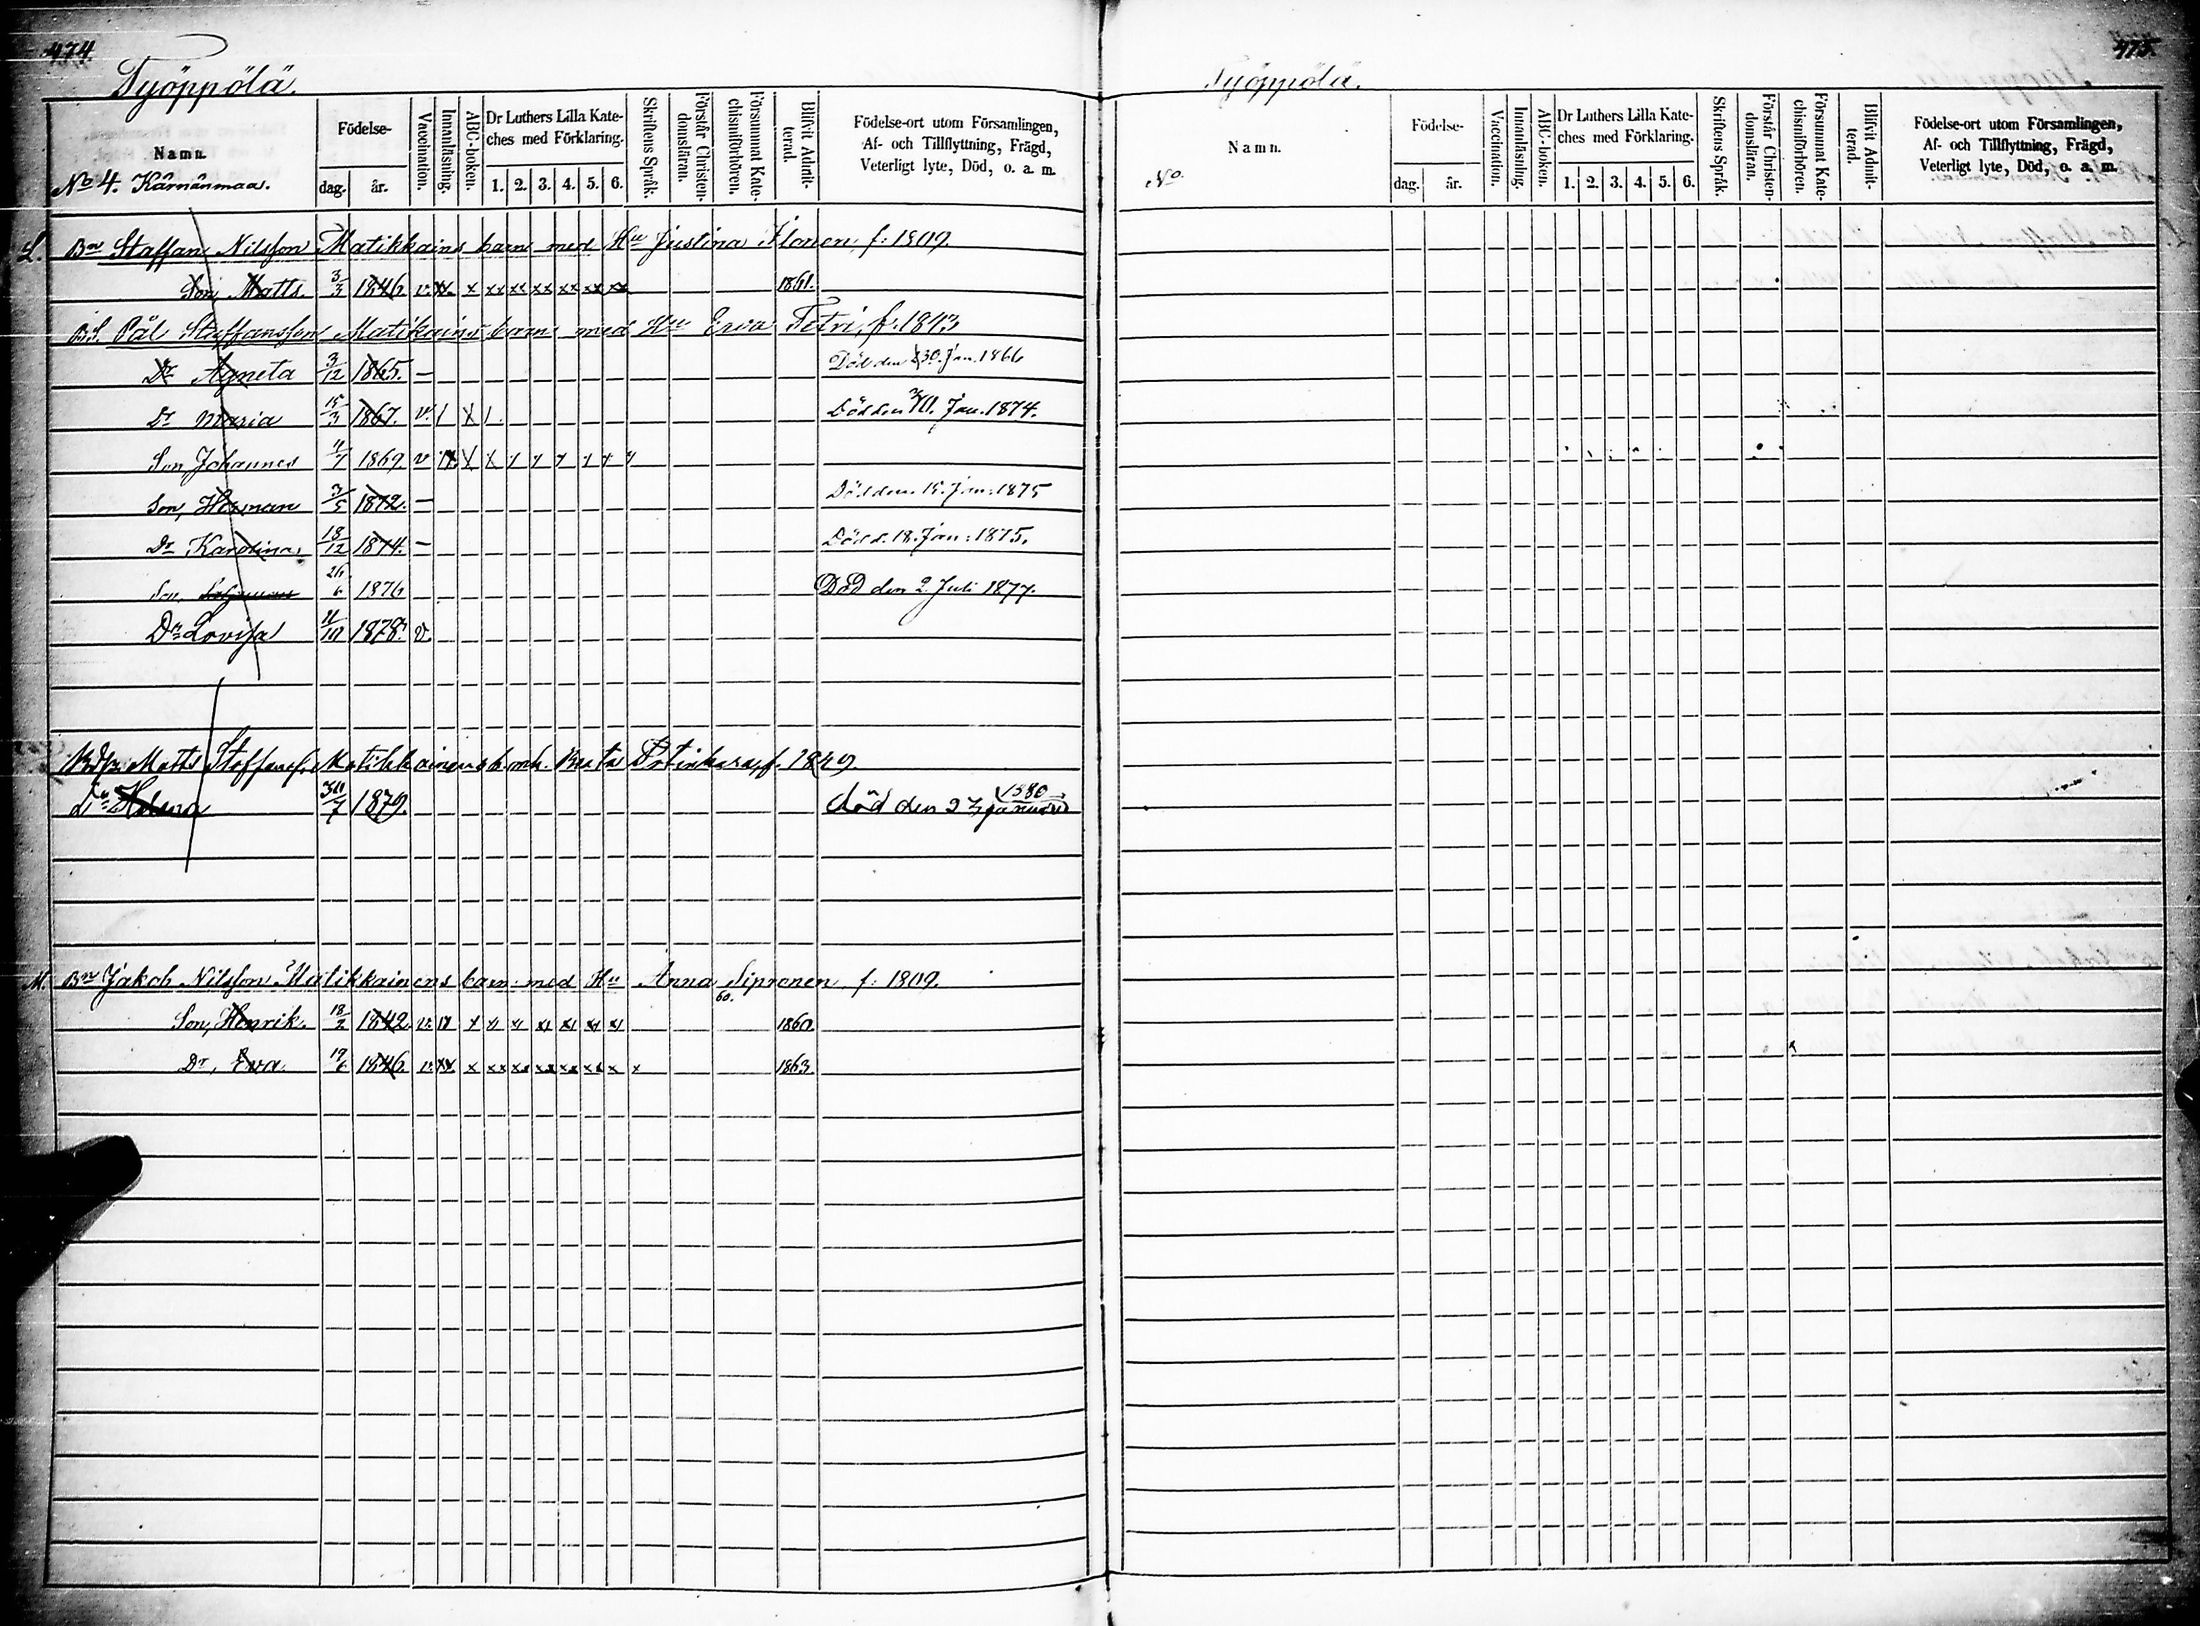 474.
Työppölä.
Namn.
No 4. Kärnänmaa.
Födelse-
dag. år.
Vaccination.
Innanläsning.
ABC-boken.
Dr Luthers Lilla Kate-
ches med Förklaring.
1. 2. 3. 4. 5. 6.
Skriftens Språk.
Förstår Christen-
domsläran.
Försummat Kate-
chismiförhören.
Blifvit Admit-
terad.
Födelse-ort utom Församlingen,
Af- och Tillflyttning, Frägd,
Veterligt lyte, Död, o. a. m.
L. Bn Staffan Nilsson Matikkains barn med Hu Justina Ilonen f: 1809.
Son, Matts. 3/3 1846. v. xx x xx xx xx xx xx xx 1861.
B.S. Pål Staffansson Matikains barn med Hu Eva Tetri, f. 1843
Dr Agneta 3/12 1865. — Död den 30. Jan. 1866
Dr Maria 15/3 1867. v. Död den Jan. 1874.
Son Johannes 1869 v
Son, Herman 3/5 1872. — Död den 15. Jan: 1875
Dr Karolina, 18/12 1874. — Död d. 18. Jan: 1875.
Son, 26/6 1876 Död den 2. Juli 1877.
Dr Lovisa 11/10 1878. v.
Matts Staffans. Matikkainens b. m. h. Beata f. 1849
Dr Helena 30/7 1879. död den 27 januari 1880
M. Bn Jakob Nilsson Matikkainens barn med Hu Anna Sipronen f: 1809.
60.
Son, Henrik. 18/2 1842. v. 1860
Dr, Eva. 19/6 1846. v. xx x xx xx xx xx xx x x 1863.
475.
Työppölä.
Namn.
No
Födelse-
dag. år.
Vaccination.
Innanläsning.
ABC-boken.
Dr Luthers Lilla Kate-
ches med Förklaring.
1. 2. 3. 4. 5. 6.
Skriftens Språk.
Förstår Christen-
domsläran.
Försummat Kate-
chismiförhören.
Blifvit Admit-
terad.
Födelse-ort utom Församlingen,
Af- och Tillflyttning, Frägd,
Veterligt lyte, Död, o. a. m.